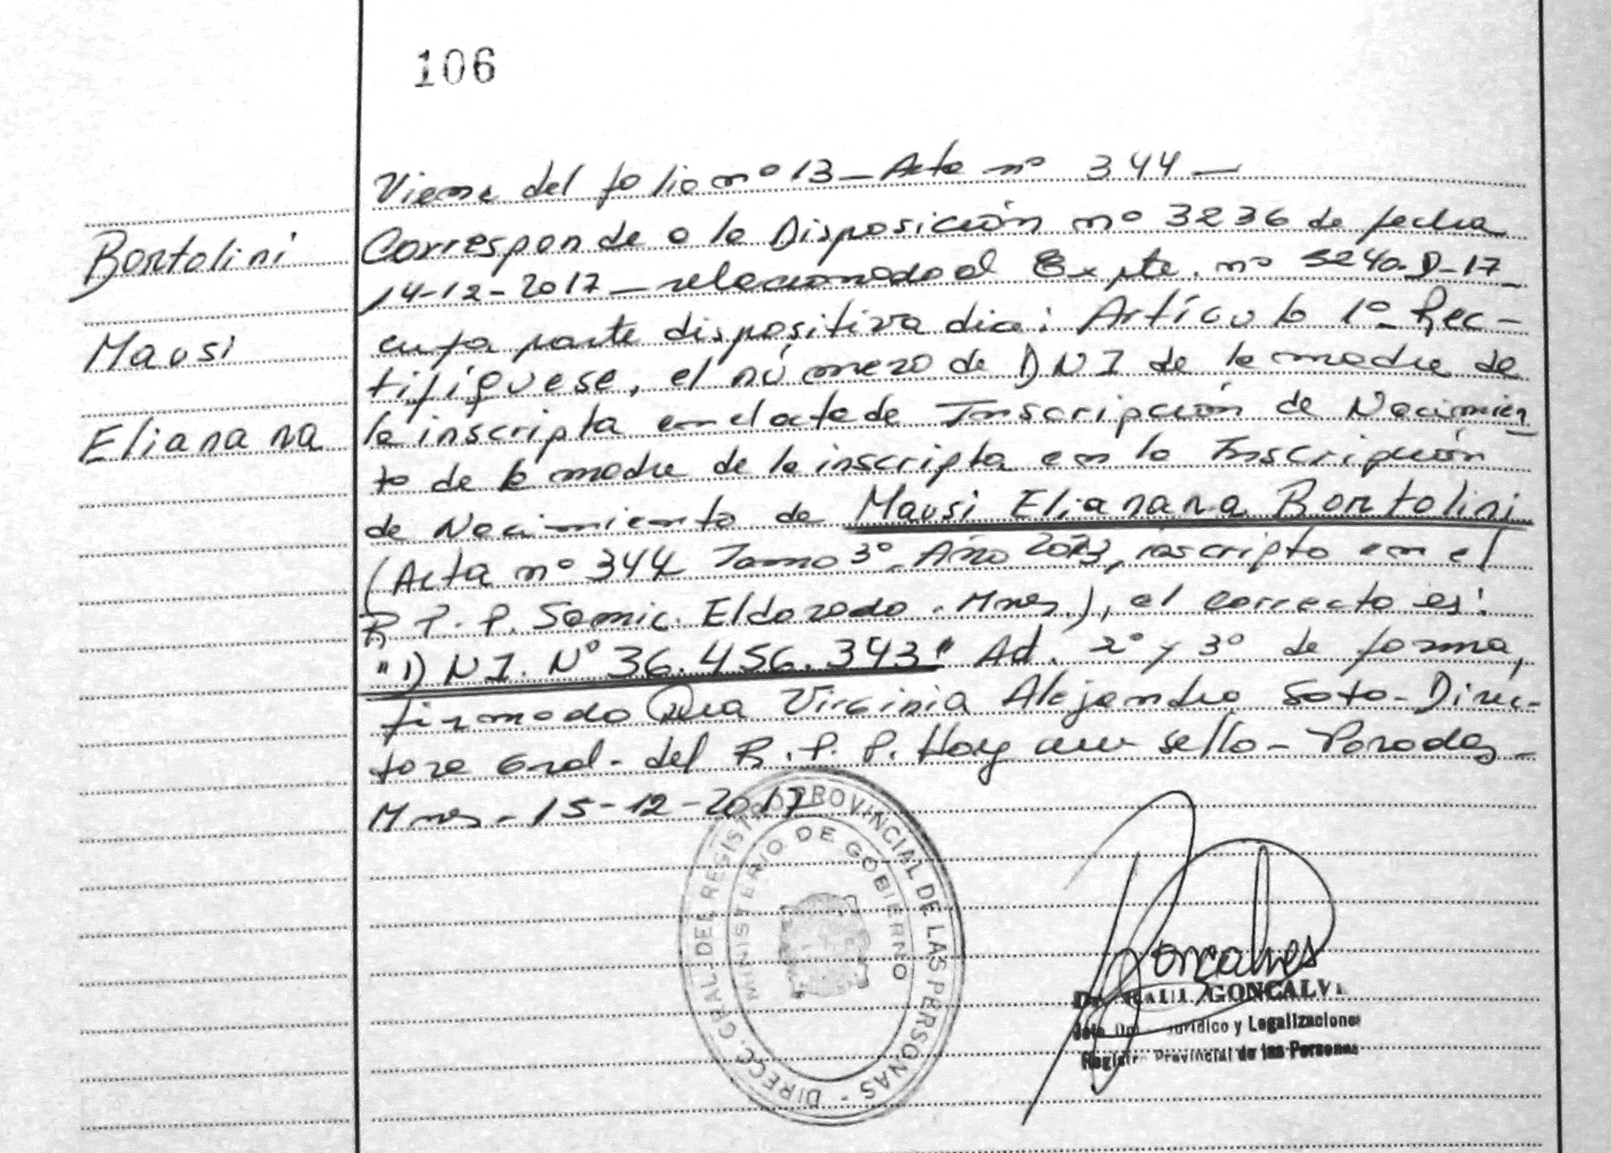 106
Bortolini
Mausi
Elianana
Viene del folio nº 13 - Acta nº 344 -
Corresponde a la Disposición nº 3236 de fecha
14-12-2017 - relacionado al Expte. nº 3240-D-17
cuya parte dispositiva dice: Artículo 1º - Rec-
tifíquese, el número de DNI de la madre de
la inscripta en el acta de Inscripción de Nacimien
to de la madre de la inscripta en la Inscripción
de Nacimiento de Mausi Elianana Bortolini
(Acta nº 344 Tomo 3º. Año 2013, inscripto en el
R.P.P. Samic. Eldorado - Mnes.), el correcto es:
"DNI. Nº 36.456.343" Ad. 2º y 3º de forma,
firmado Dra Virginia Alejandra Soto - Direc-
tora Gral. del R.P.P. Hay un sello - Posadas -
Mnes - 15-12-2017
DIRECC. GRAL. DEL REGISTRO PROVINCIAL DE LAS PERSONAS -
MINISTERIO DE GOBIERNO
Goncalves
Dr. RAUL GONCALV
Jefe Dpt. Jurídico y Legalizaciones
Registro Provincial de las Personas